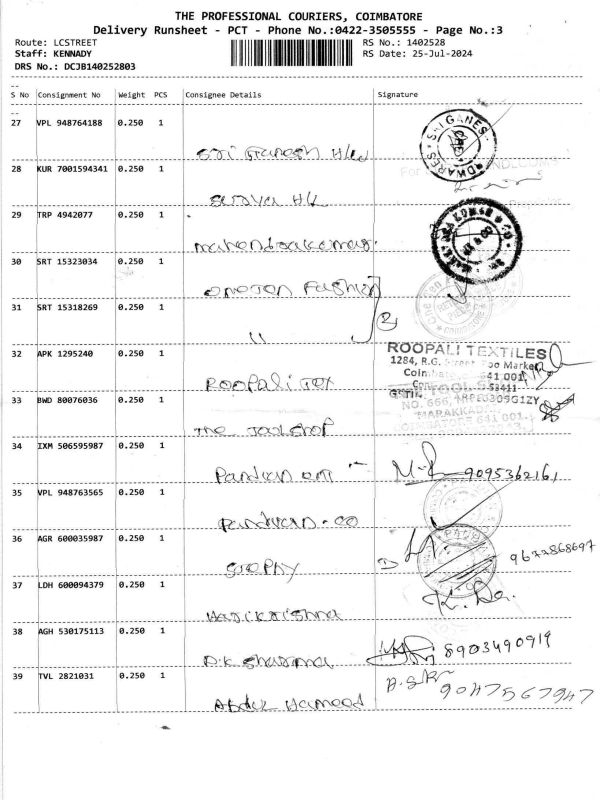 THE PROFESSIONAL COURIERS, COIMBATORE
Delivery Runsheet - PCT - Phone No.:0422-3505555 - Page No.:3
Route: LCSTREET RS No.: 1402528
Staff: KENNADY RS Date: 25-Jul-2024
DRS No.: DCJB140252803
S No Consignment No Weight PCS Consignee Details Signature
27 VPL 948764188 0.250 1
Sri Ganesh H/W
28 KUR 7001594341 0.250 1
Surya HL
29 TRP 4942077 0.250 1
Mahendrakumar
30 SRT 15323034 0.250 1
Fashion
31 SRT 15318269 0.250 1
11 2
32 APK 1295240 0.250 1
ROOPALI TEXTILES
1284, R.G. Street
641 001
Roopali Tex
33 BWD 80076036 0.250 1
The Toolshop
34 IXM 506595987 0.250 1
Pandian 9095362161
35 VPL 948763565 0.250 1
Pandian.co
36 AGR 600035987 0.250 1
9677868697
37 LDH 600094379 0.250 1
Harikrishna
38 AGH 530175113 0.250 1
P.K Sharma 8903490919
39 TVL 2821031 0.250 1
9047567947
Abdul Hameed